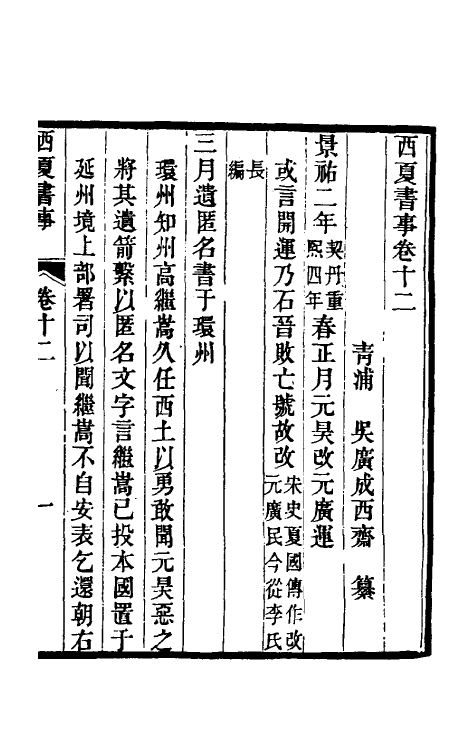 西夏書事卷十二
青浦　吳廣成西齋　纂
景祐二年契丹重熙四年春正月元昊改元廣運
或言開運乃石晉敗亡號故改宋史夏國傳作改元廣民今從李氏
長編
三月遺匿名書于環州
環州知州高繼嵩久任西土以勇敢聞元昊惡之
將其遺箭繫以匿名文字言繼嵩已投本國置于
延州境上部署司以聞繼嵩不自安表乞還朝右
西夏書事　卷十二　一